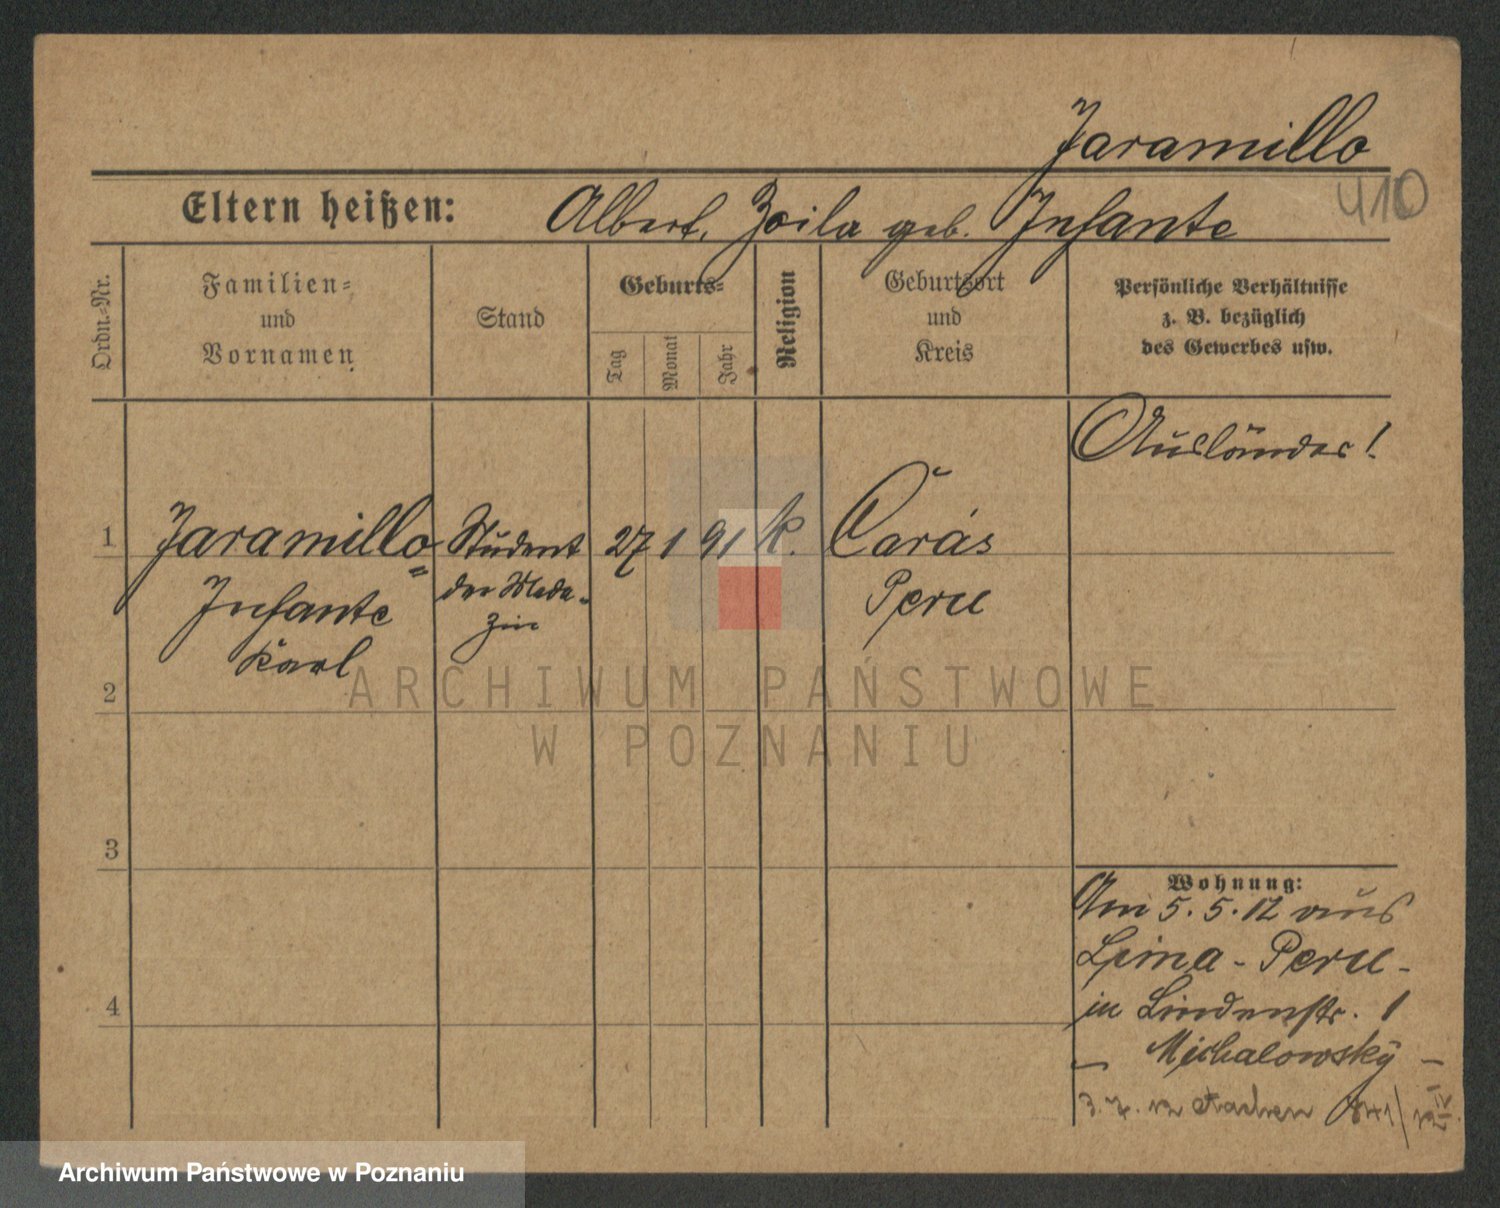 Jaramillo
410
Eltern heißen: Albert, Zoila geb. Infante
Ordn.-Nr.
Familien-
und
Vornamen
Stand
Geburts-
Tag
Monat
Jahr
Religion
Geburtsort
und
Kreis
Persönliche Verhältnisse
z. B. bezüglich
des Gewerbes usw.
Ausländer!
1 Jaramillo Student 27 1 91 k. Carás
Infante der Medi-
zin
Peru
Karl
2
3
4
Wohnung:
Am 5.5.12 aus
Lima - Peru -
in Lindenstr. 1
- Michalowsky -
3.7. Aachen 841/
ARCHIWUM PAŃSTWOWE
W POZNANIU
Archiwum Państwowe w Poznaniu